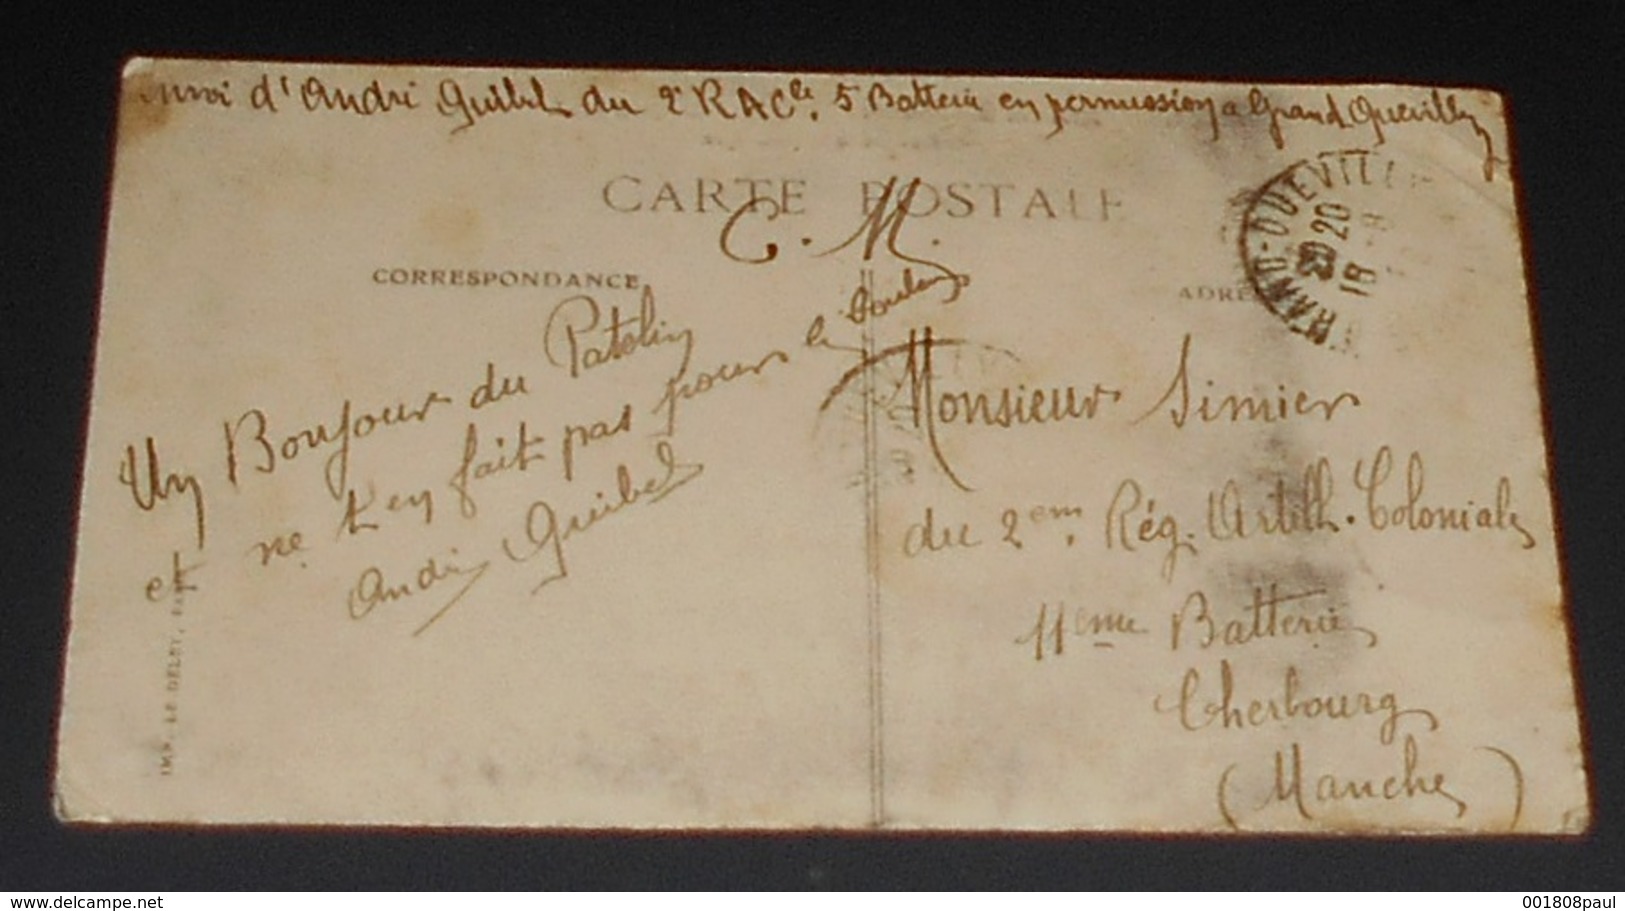 Envoi d'André Guibel du 2e RACle. 5 Batterie en permission a Grand Quevilly
CARTE POSTALE
C. M.
CORRESPONDANCE
ADRE
20
18
Un Bonjour du Patelin
et ne t'en fait pas pour le
André Guibel
Monsieur Simier
du 2em. Rég. Artill. Coloniale
11eme Batterie
Cherbourg
(Manche)
IMP. LE DELEY, PARIS
www.delcampe.net
001808paul